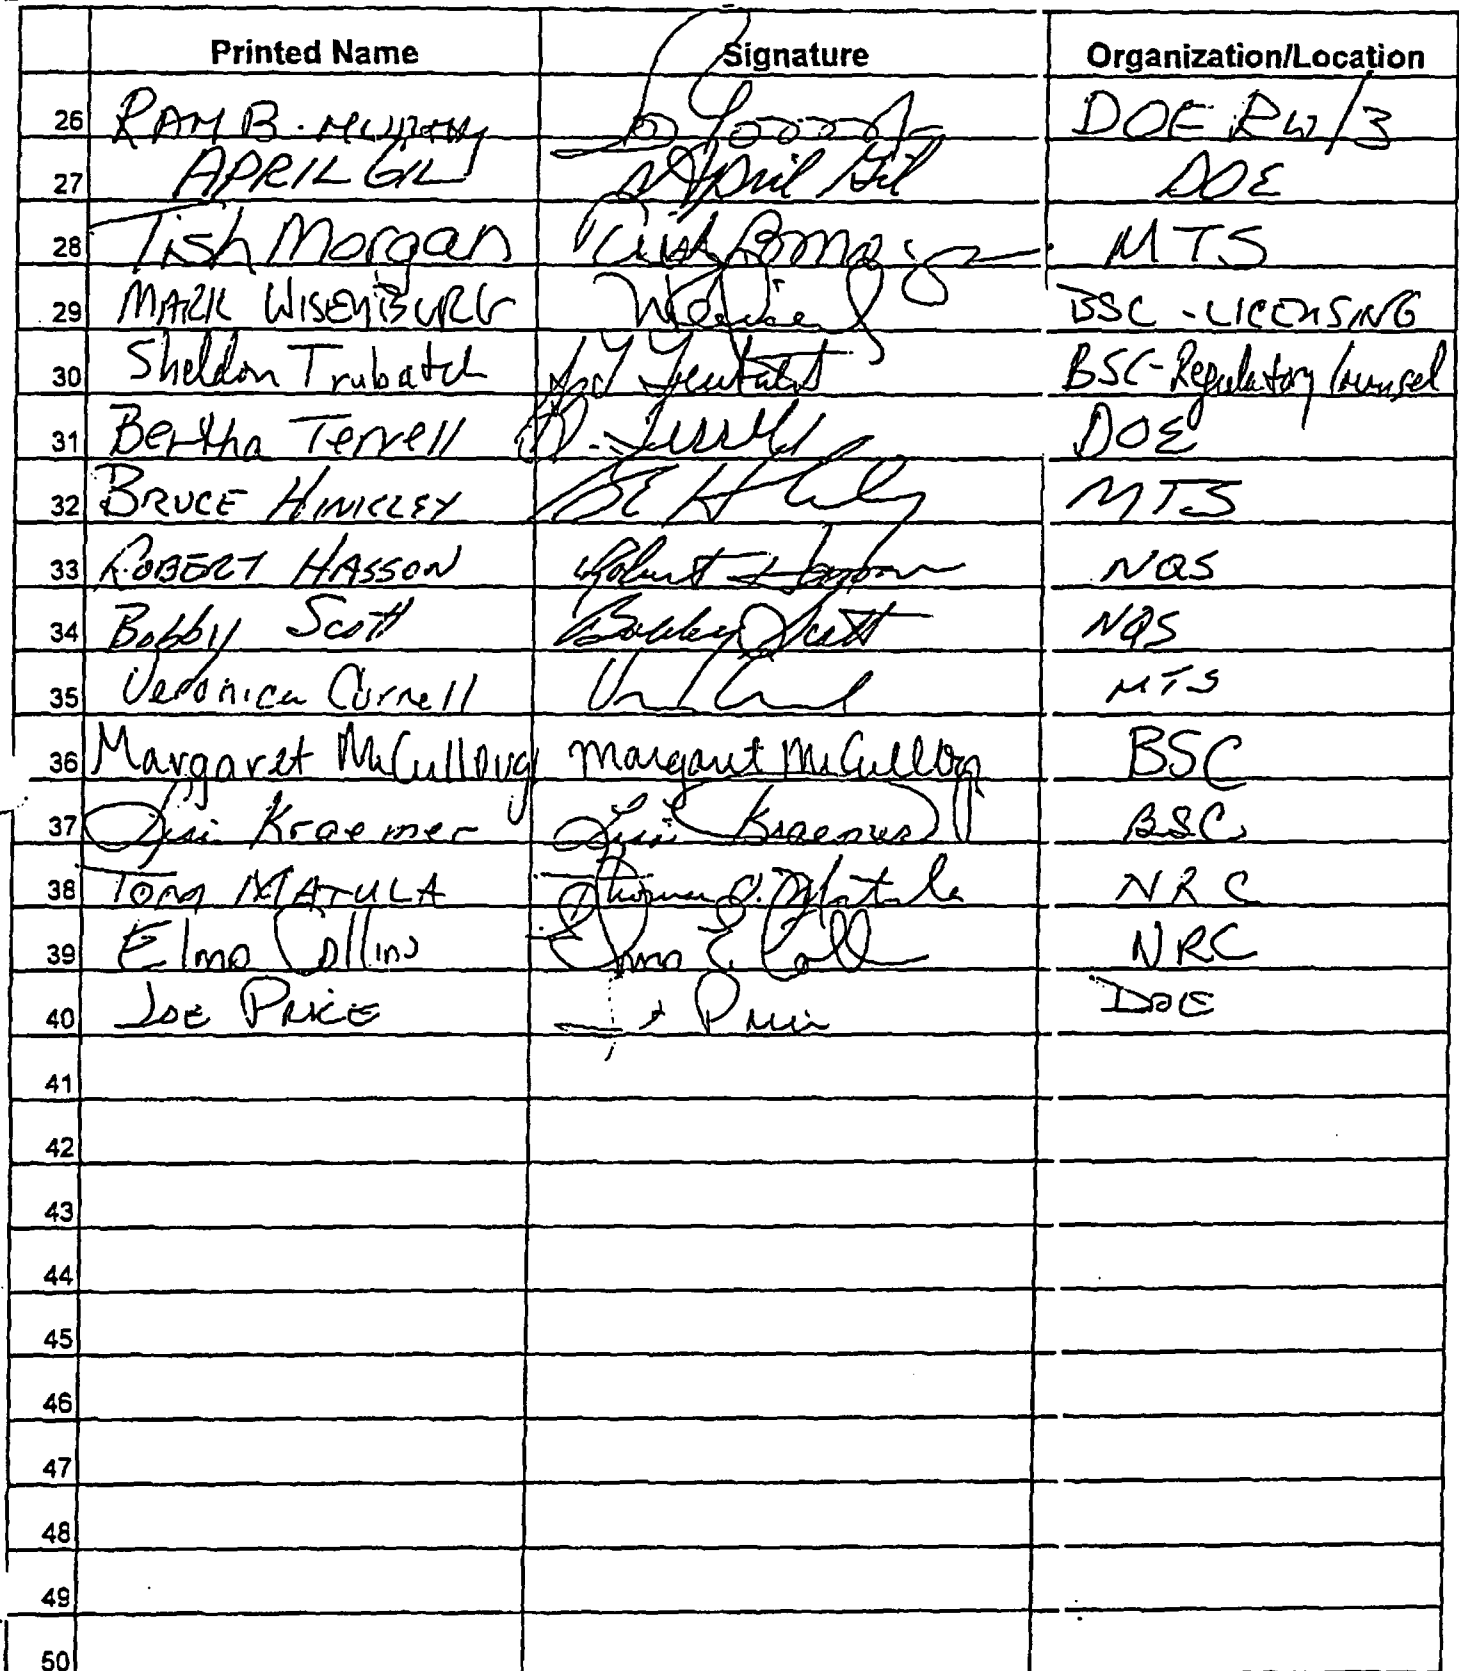 Printed Name Signature Organization/Location
26 RAM B. MURTHY DOE RW/3
27 APRIL GIL April Gil DOE
28 Tish Morgan MTS
29 MARK WISENBURG BSC - LICENSING
30 Sheldon Trubatch BSC-Regulatory Counsel
31 Bertha Terrell B. Terrell DOE
32 BRUCE HINKLEY MTS
33 ROBERT HASSON Robert Hasson NQS
34 Bobby Scott Bobby Scott NQS
35 Veronica Cornell MTS
36 Margaret McCulloug Margaret McCulloug BSC
37 Kraemer Kraemer BSC
38 TOM MATULA Thomas Matula NRC
39 Elmo Collins Elmo E. Coll NRC
40 JOE PRICE DOE
41
42
43
44
45
46
47
48
49
50